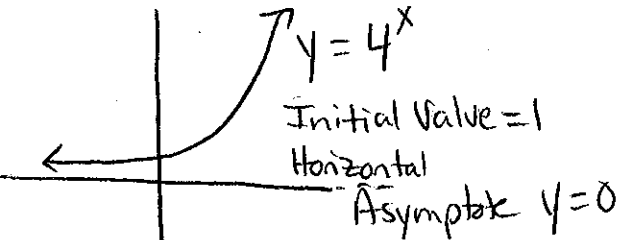 y = 4^x
Initial Value = 1
Horizontal
Asymptote y = 0